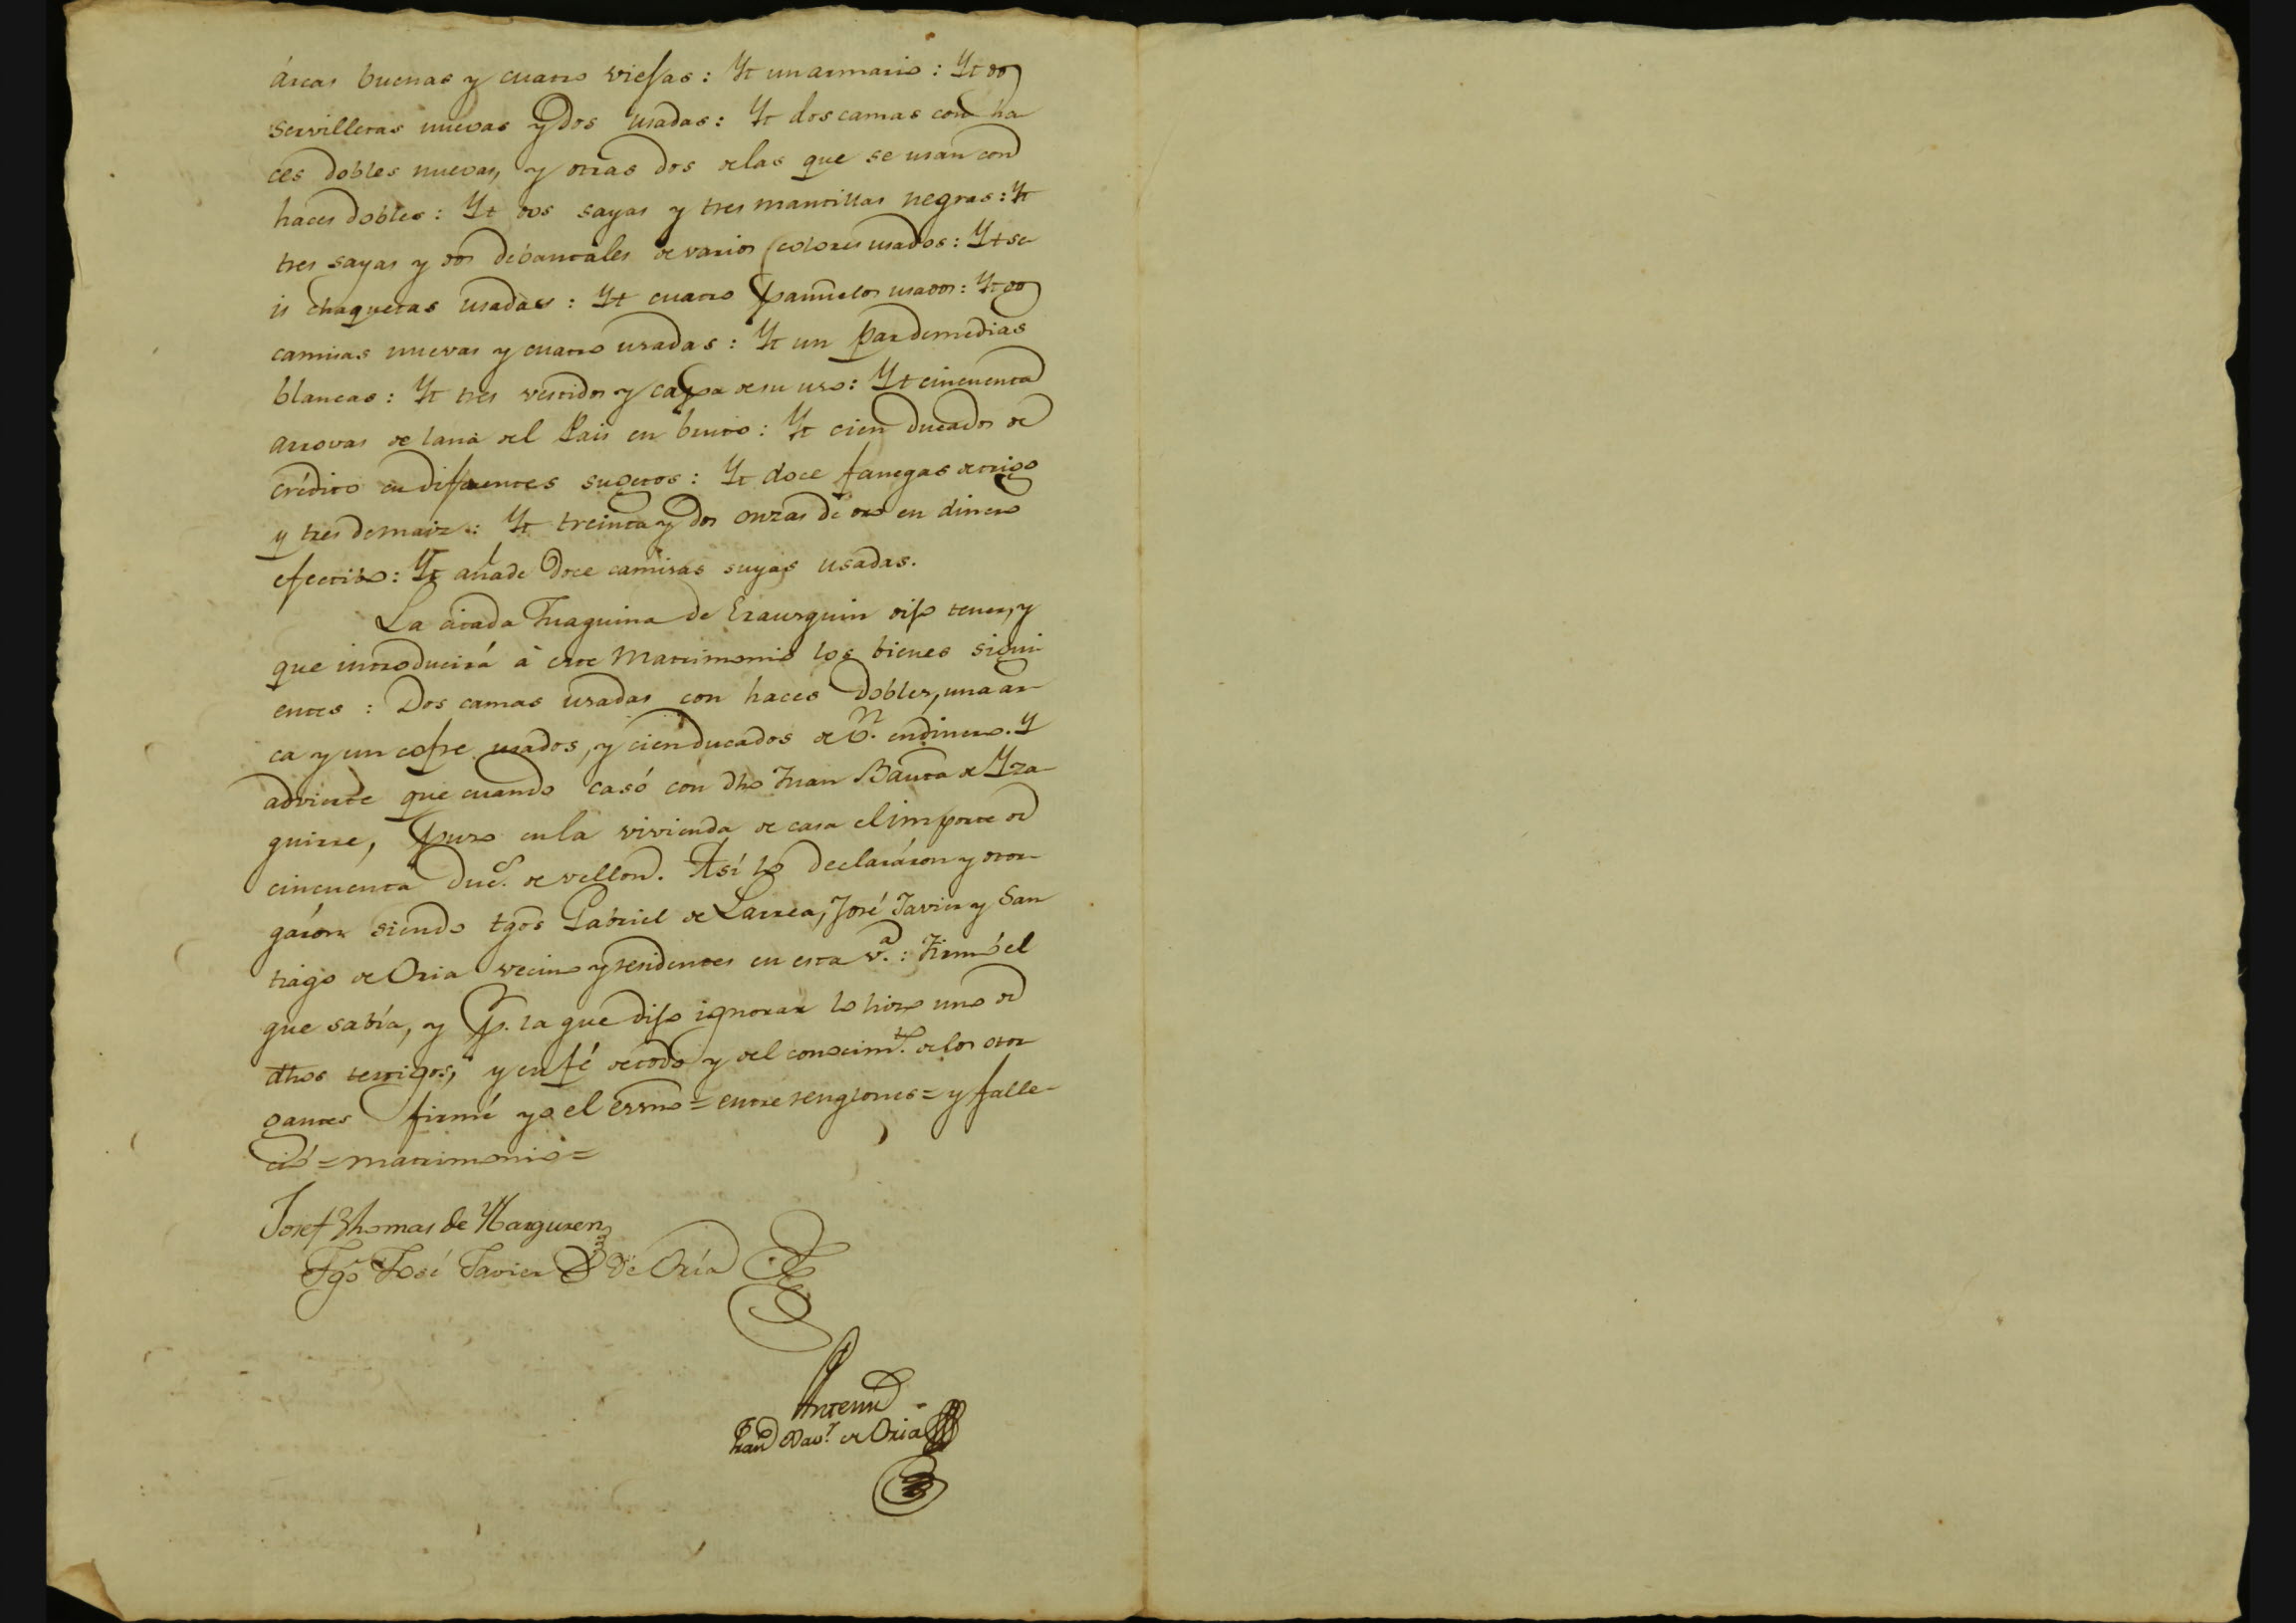 árcas buenas y cuatro viejas: Yt un armario: Yt dos
servilletas nuevas y dos usadas: Yt dos camas con ha-
ces dobles nuevas, y otras dos de las que se usan con
haces dobles: Yt dos sayas y tres mantillas negras: Yt
tres sayas y dos debantales de varios colores usados: Yt se-
is chaquetas usadas: Yt cuatro pañuelos usados: Yt dos
camisas nuevas y cuatro usadas: Yt un par de medias
blancas: Yt tres vestidos y capa de su uso: Yt cincuenta
arrovas de lana del Pais en bruto: Yt cien ducados de
crédito en diferentes sugetos: Yt doce fanegas de trigo
y tres de maiz: Yt treinta y dos onzas de oro en dinero
efectibo: Yt añade doce camisas suyas usadas.
La citada Juaquina de Erausquin dijo tener, y
que introducirá á este Matrimonio los bienes sigui-
entes: Dos camas usadas con haces dobles, una ar-
ca y un cofre usados, y cien ducados de Vn. en dinero. Y
advierte que cuando casó con dho Juan Bauta de Yza-
guirre, puso en la vivienda de casa el importe de
cincuenta duc.s de vellon. Así lo declaráron y otor-
gáron siendo tgos Gabriel de Larrea, José Javier y San-
tiago de Oria vecino y residentes en esta v.a: Firmó el
que sabía, y p.r la que dijo ignorar lo hizo uno de
dhos testigos, y en fé de todo y del conocim.to de los otor-
gantes firmé yo el essno = entre renglones = y falle-
ció = matrimonio =
Josef Thomas de Ybarguren
Tgo José Javier de Oría
Antemi
Fran.co Xav.r de Oria